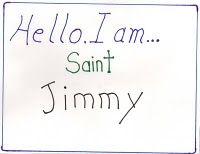 Hello. I am...
Saint
Jimmy